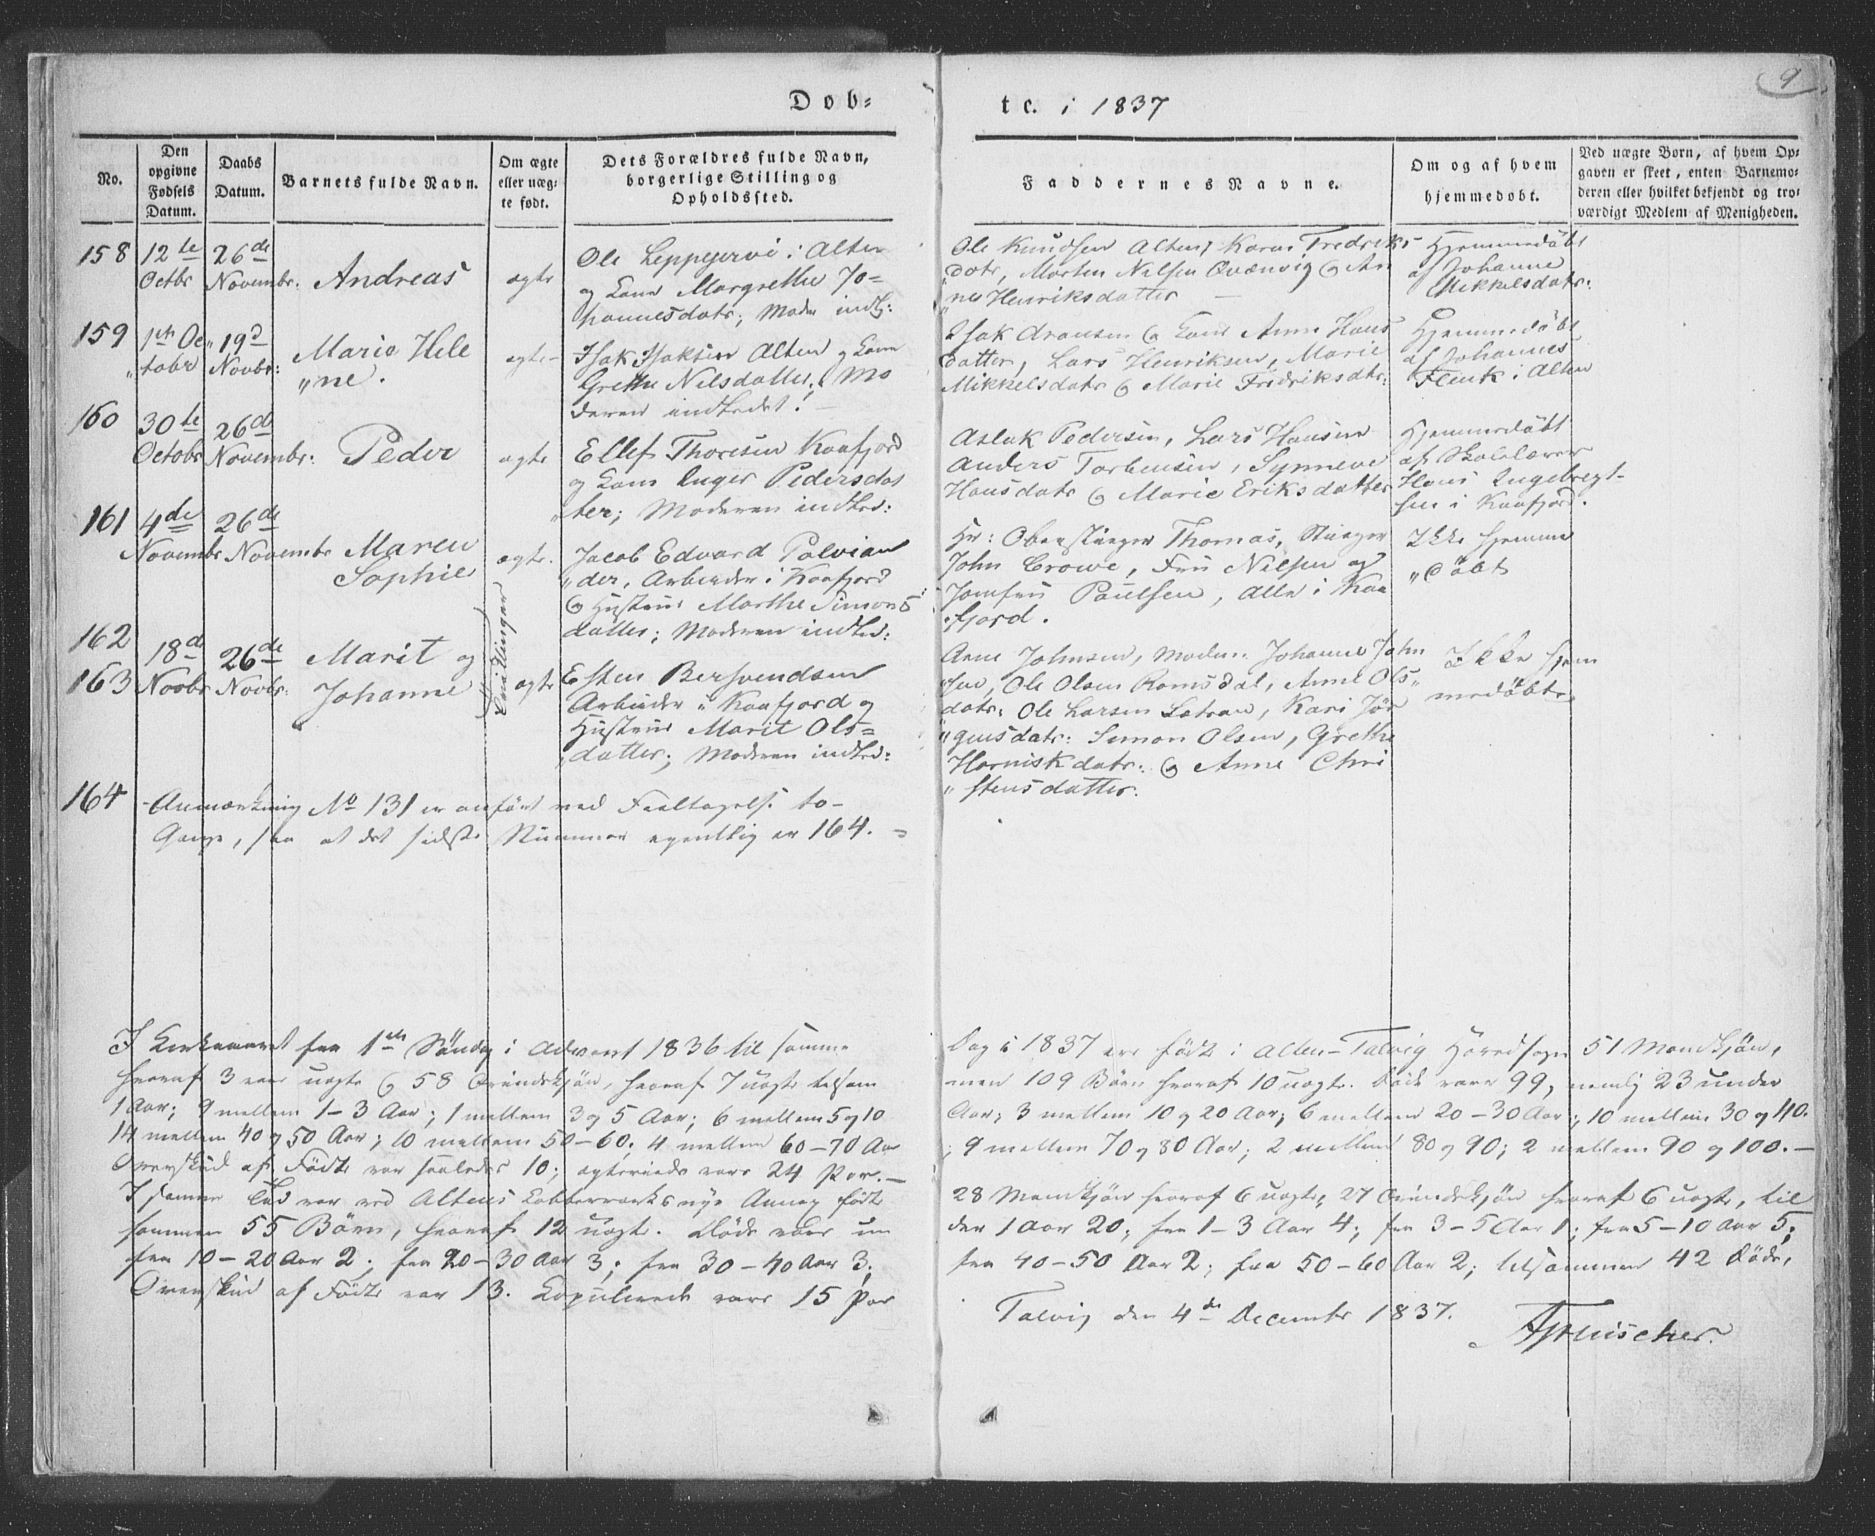 Dob=
te. i 1837
9
No.
Den opgivne Fødsels Datum.
Daabs Datum.
Barnets fulde Navn.
Om ægte eller uæg= te født.
Dets Forældres fulde Navn, borgerlige Stilling og Opholdssted.
Faddernes Navne.
Om og af hvem hjemmedøbt.
Ved uægte Børn, af hvem Op= gaven er skeet, enten Barnemo= deren eller hvilket bekjendt og tro= værdigt Medlem af Menigheden.
158 12te Octbr 26de Novembr. Andreas ægte
Ole i Alten
og Kone Margrethe Jo=
hannesdatr; Mode indl:
Ole Knudsen Alten, Karen Fredriks
datr, Morten Nilsen Qvænvig & An
nes Henriksdatter —
Hjemmedøbt
af Johanne
Mikkelsdatr.
159 1ste Oc„ tobr 19d Novbr: Marie Hele
„ne. ægte
Isak Isaksen Alten og Kone
Grethe Nilsdatter, Mo
deren indledet! —
Isak Aronsen & Kone Anne Hans
datter, Lars Henriksen, Marie
Mikkelsdatr & Marie Fredriksdtr:
Hjemmedøbt
af Johannes
Flenk i Alten
160 30te Octobr 26de Novembr: Peder ægte
Ellef Thoresen Kaafjord
og Kone Inger Pedersdat
„ter; Moderen indled:
Aslak Pedersen, Lars Hansen
Anders Torbensen, Synneve
Hansdatr & Marie Eriksdatter
Hjemmedøbt
af Skolelærer
Hans Ingebregt-
sen i Kaafjord.
161 4de Novembr 26de Novembr Maren
Sophie ægte.
Jacob Edvard Palvian
„der, Arbeider i Kaafjord
& Hustrue Marthe Simons
datter; Moderen indled:
Hr: Oberstieger Thomas, Stieger
John Crowe, Fru Nilsen og
Jomfru Paulsen, alle i Kaa
fjord.
Ikke hjemme
„døbt
162 18d Novbr 26de Novbr: Marit og
163 Johanne
Tvillinger
ægte
Esten Bersvendsen
Arbeider i Kaafjord og
Hustrue Marit Ols=
datter; Moderen indled:
Arne Johnsen, Moder. Johanne John
„sen, Ole Olsen Romsdal, Anne Ols„
datr: Ole Larsen Lætran, Kari Jør
„gensdatr: Simon Olsen, Grethe
datr: & Anne Chri
„stensdatter.
Ikke hjem
medøbte
164 Anmærkning No 131 er anført ved Feiltagelse to
Gange, saa at det sidste Nummer egentlig er 164. =
I Kirkeaaret fra 1ste Søndag i Advent 1836 til samme
Dag i 1837 ere født i Alten-Talvig Hovedsogn 51 Mandkjøn,
hvoraf 3 vare uægte & 58 Qvindekjøn, hvoraf 7 uægte tilsam
men 109 Børn hvoraf 10 uægte. Døde vare 99, nemlig 23 under
1 Aar; 9 mellem 1-3 Aar; 1 mellem 3 og 5 Aar; 6 mellem 5 og 10
Aar; 3 mellem 10 og 20 Aar; 6 mellem 20-30 Aar; 10 mellem 30 og 40.
14 mellem 40 og 50 Aar; 10 mellem 50-60; 4 mellem 60-70 Aar
; 9 mellem 70 og 80 Aar; 2 mellem 80 og 90; 2 mellem 90 og 100. —
Overskud af Fødte var saaledes 10; ægteviede vare 24 Par. —
I samme Tid var ved Altens Kobberværks nye Annex fødte
28 Mandkjøn hvoraf 6 uægte, 27 Qvindekjøn hvoraf 6 uægte, til
sammen 55 Børn, hvoraf 12 uægte. Døde vare un
der 1 Aar 20; fra 1-3 Aar 4; fra 3-5 Aar 1; fra 5-10 Aar 5;
fra 10-20 Aar 2; fra 20-30 Aar 3; fra 30-40 Aar 3;
fra 40-50 Aar 2; fra 50-60 Aar 2; tilsammen 42 døde,
Overskud af Fødte var 13. Kopulerede vare 15 Par
Talvig den 4de Decembr 1837.